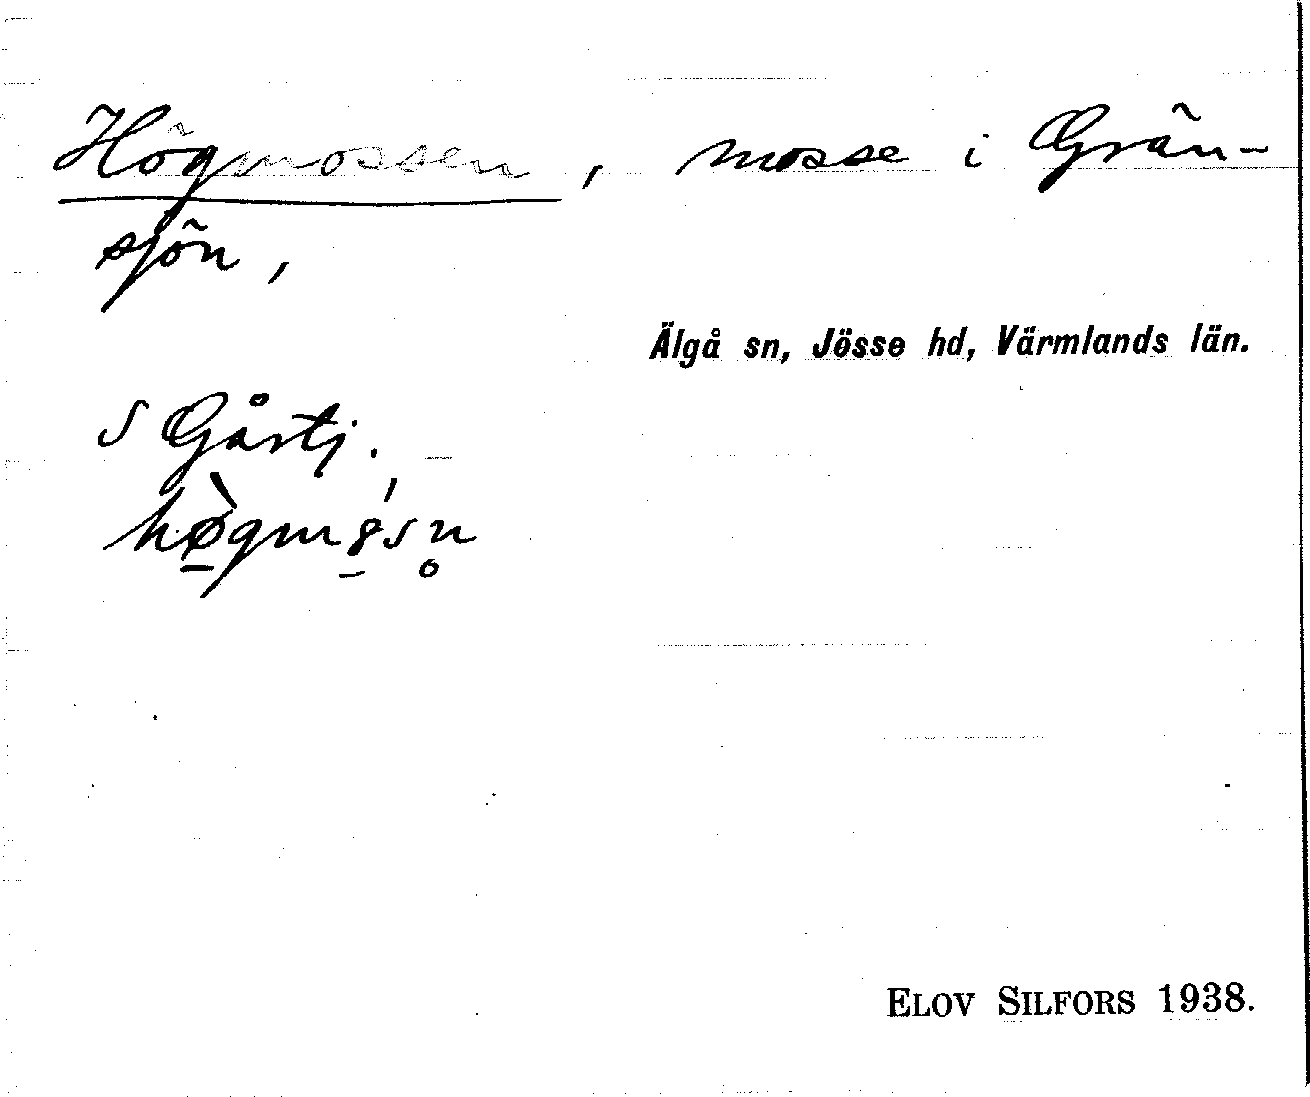 Högmossen, mosse i Grän-
sjön,
Älgå sn, Jösse hd, Värmlands län.
S Gårtj.
ELOV SILFORS 1938.